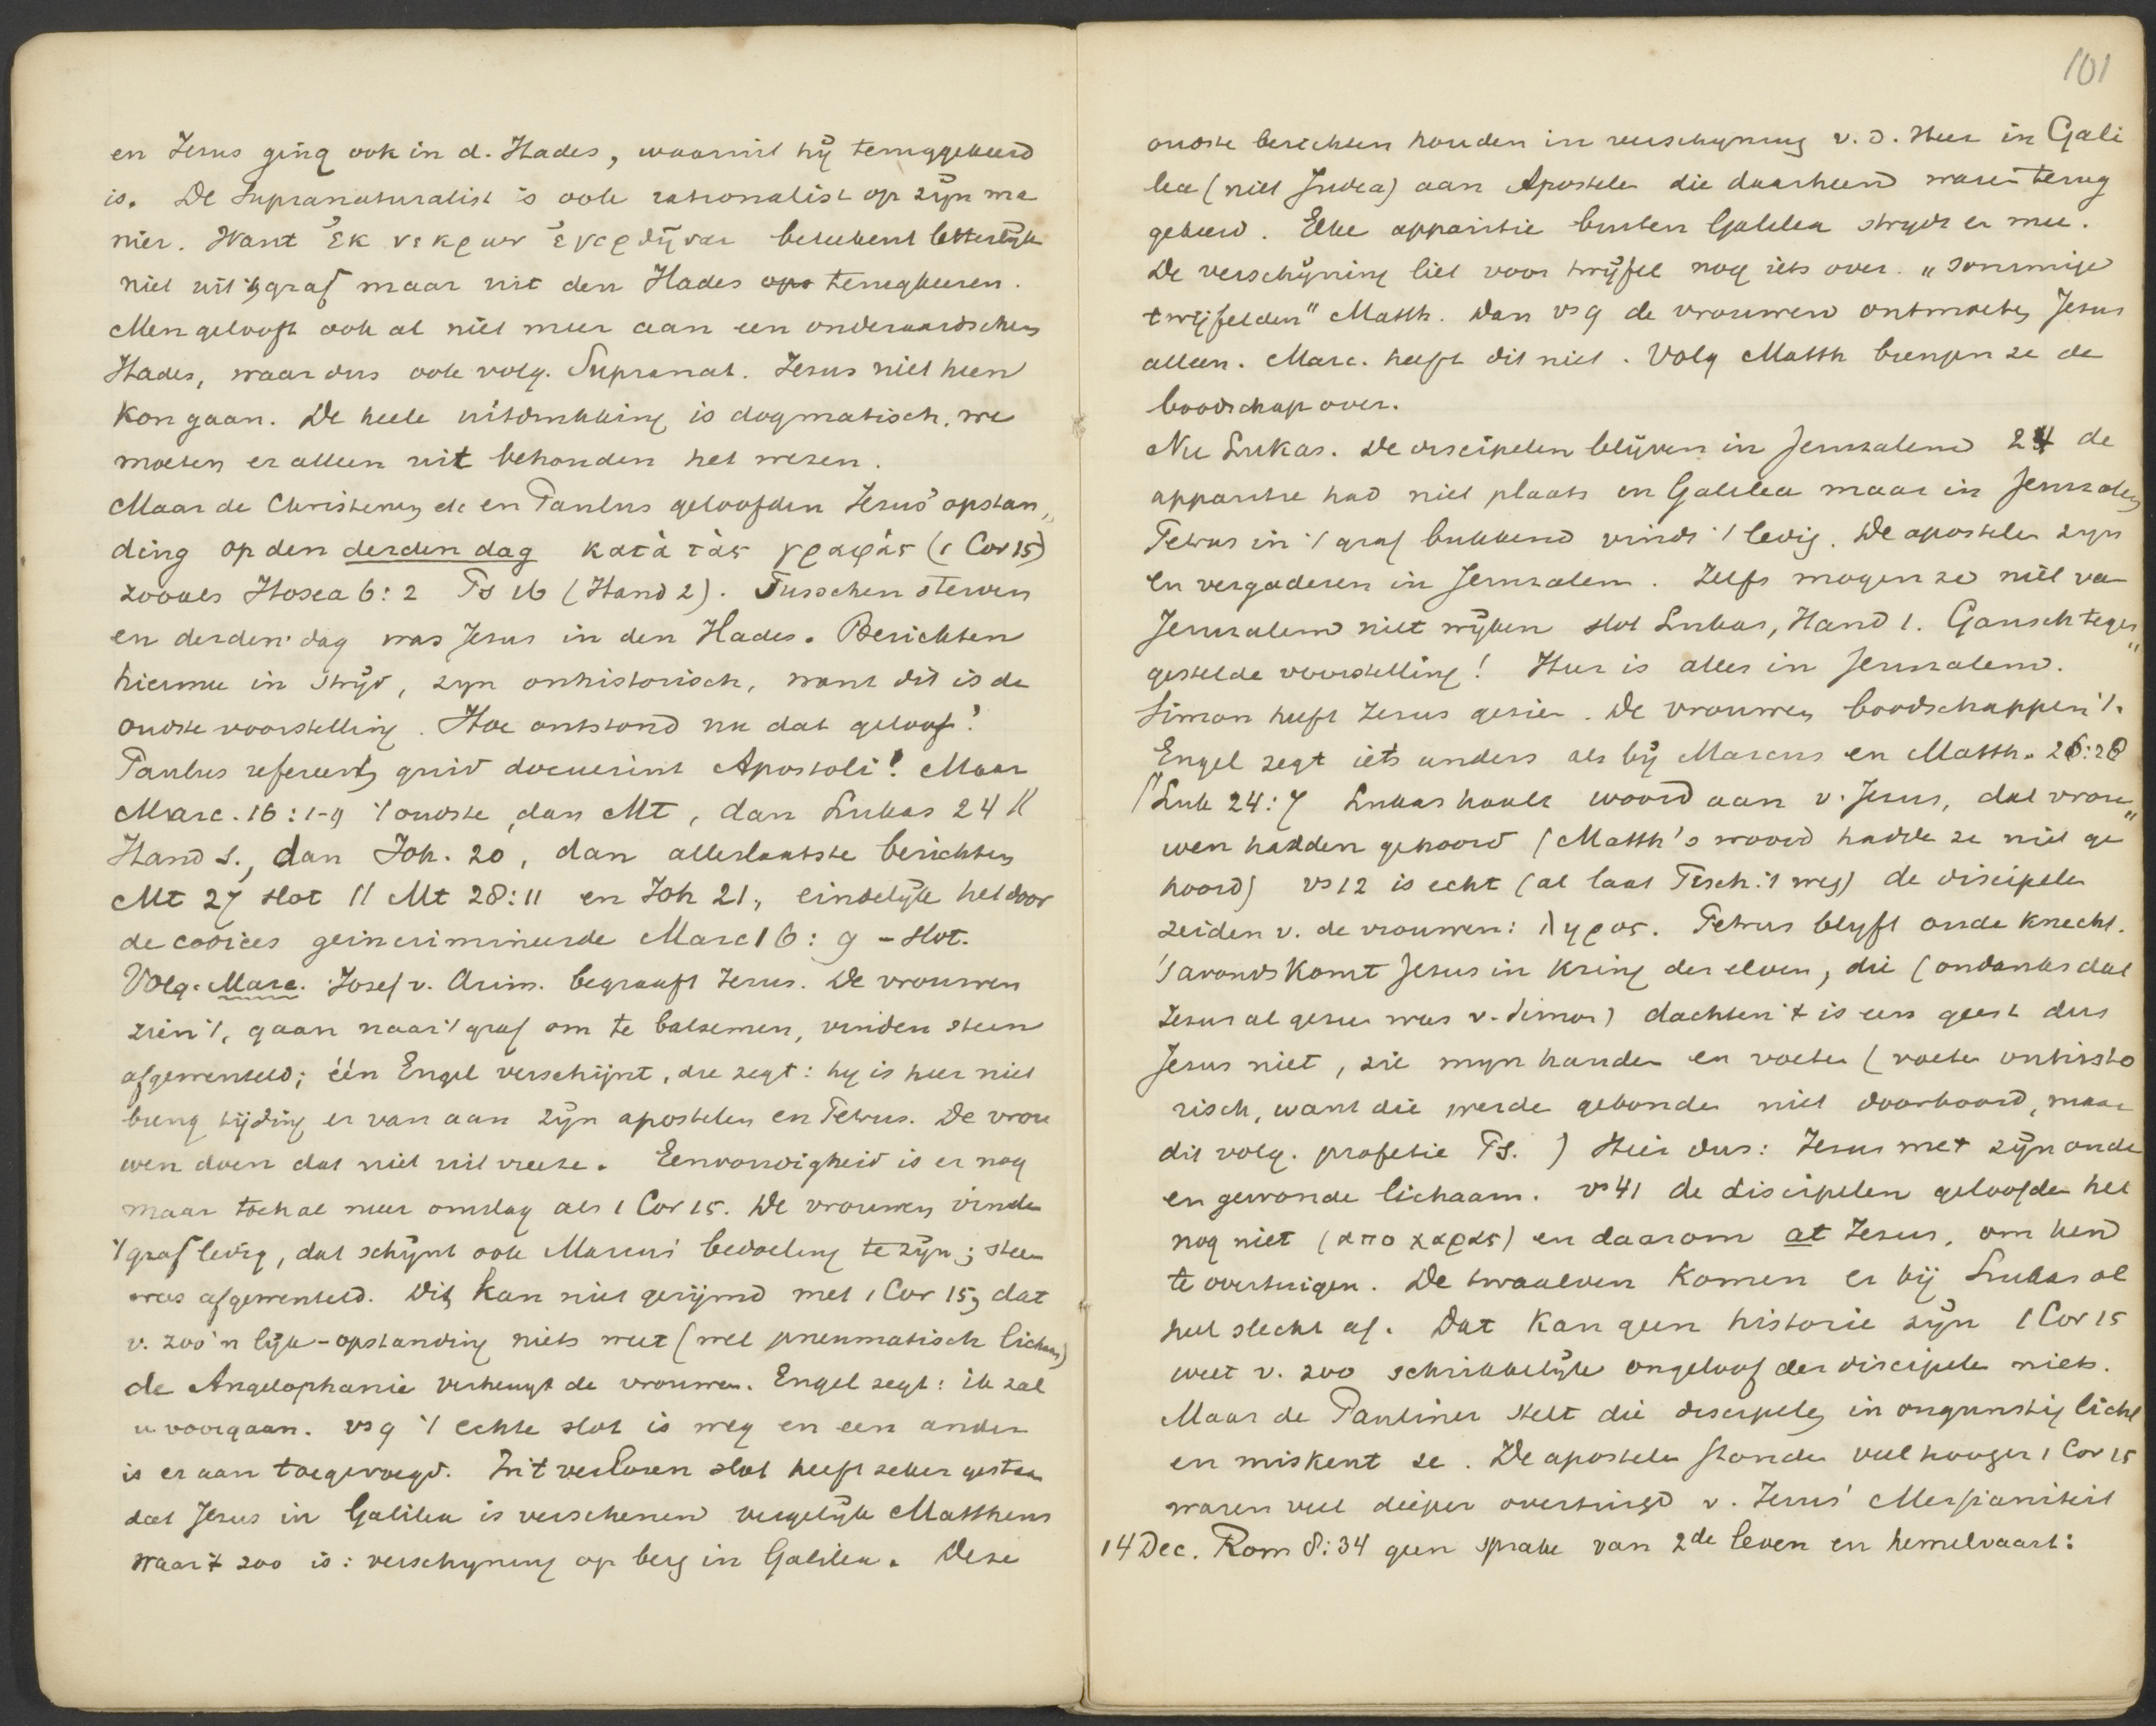 en Jesus ging ook in d. Hades, waaruit hij teruggekeerd
is. De Supranaturalist is ook rationalist op zijn ma
nier. Want ἐκ νεκρων ἐγερθῆναι beteekent letterlijk
niet uit 't graf maar uit den Hades terugkeeren.
Men gelooft ook al niet meer aan een onderaardschen
Hades, waar dus ook volg. Supranat. Jesus niet heen
kon gaan. De heele uitdrukking is dogmatisch, we
moeten er alleen uit behouden het wezen.
Maar de Christenen etc en Paulus geloofden Jesus' opstan„
ding op den derden dag κατὰ τὰς γραφὰς (1 Cor 15)
zooals Hosea 6:2 Ps 16 (Hand 2). Tusschen sterven
en derden dag was Jesus in den Hades. Berichten
hiermee in strijd, zyn onhistorisch, want dit is de
oudste voorstelling. Hoe ontstond nu dat geloof?
Paulus refereert quid docuerint Apostoli! Maar
Marc. 16:1-9 't oudste, dan Mt, dan Lukas 24 //
Hand 1., dan Joh. 20, dan allerlaatste berichten
Mt 27 slot // Mt 28:11 en Joh 21, eindelijk het door
de codices geincrimineerde Marc 16:9 - slot.
Volg. Marc. Josef v. Arim. begraaft Jesus. De vrouwen
zien 't, gaan naar 't graf om te balsemen, vinden steen
afgewenteld; één Engel verschijnt, die zegt: hy is hier niet
breng tijding er van aan zijn apostelen en Petrus. De vrou
wen doen dat niet uit vreeze. Eenvoudigheid is er nog
maar toch al meer omslag als 1 Cor 15. De vrouwen vinden
't graf ledig, dat schijnt ook Marcus' bedoeling te zijn; steen
was afgewenteld. Dit kan niet gerijmd met 1 Cor 15, dat
v. zoo'n lijk-opstanding niets weet (wel pneumatisch lichaam)
de Angelophanie verheugt de vrouwen. Engel zegt: ik zal
u voorgaan. vs 9 't echte slot is weg en een ander
is er aan toegevoegd. In 't verloren slot heeft zeker gestaan
dat Jesus in Galilea is verschenen vergelijk Mattheus
waar 't zoo is: verschyning op berg in Galilea. Deze
101
oudste berichten houden in verschyning v. d. Heer in Gali
lea (niet Judea) aan Apostelen die daarheen waren terug
gekeerd. Elke apparitie buiten Galilea strydt er mee.
De verschijning liet voor twijfel nog iets over. „sommige
twijfelden" Matth. Dan vs 9 de vrouwen ontmoeten Jesus
alleen. Marc. heeft dit niet. Volg Matth brengen ze de
boodschap over.
Nu Lukas. De discipelen blijven in Jeruzalem 24 de
apparitie had niet plaats in Galilea maar in Jeruzalem
Petrus in 't graf bukkend vindt 't ledig. De apostelen zyn
en vergaderen in Jeruzalem. Zelfs mogen ze niet van
Jeruzalem niet wijken slot Lukas, Hand 1. Gansch tegen„
gestelde voorstelling! Hier is alles in Jeruzalem.
Simon heeft Jesus gezien. De vrouwen boodschappen 't.
Engel zegt iets anders als bij Marcus en Matth. 26:28
(Luk 24:7 Lukas haalt woord aan v. Jesus, dat vrou„
wen hadden gehoord (Matth's woord hadde ze niet ge
hoord) vs 12 is echt (al laat Tisch. 't weg) de discipelen
zeiden v. de vrouwen: ληρος. Petrus blyft oude knecht.
's avonds komt Jesus in kring der elven, die (ondanks dat
Jesus al gezien was v. Simon) dachten 't is een geest dus
Jesus niet, zie myn handen en voeten (voeten onhisto
risch, want die werden gebonden niet doorboord, maar
dit volg. profetie Ps. ) Hier dus: Jesus met zijn oude
en gewonde lichaam. vs 41 de discipelen geloofden het
nog niet (απο χαρας) en daarom at Jesus, om hen
te overtuigen. De twaalven komen er bij Lukas al
heel slecht af. Dat kan geen historie zijn 1 Cor 15
weet v. zoo schrikkelijk ongeloof der discipelen niets.
Maar de Pauliner stelt die discipelen in ongunstig licht
en miskent ze. De apostelen stonden veel hooger 1 Cor 15
waren veel dieper overtuigd v. Jesus' Messianiteit
14 Dec. Rom 8:34 geen sprake van 2de leven en hemelvaart: